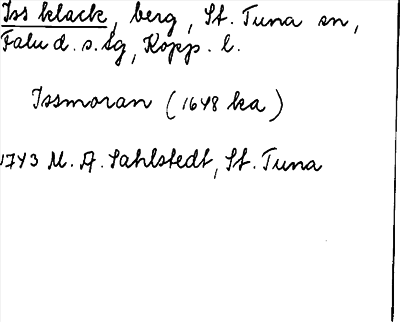 Iss klack, berg, St. Tuna sn,
Falu d. s. tg, Kopp. l.
Issmoran (1648 ka)
1743 M. A. Sahlstedt, St. Tuna